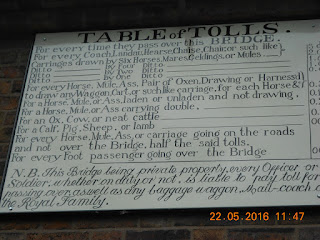 TABLE of TOLLS.
For every time they pass over this BRIDGE.
For every Coach, Landau, Hearse, Chaise, Chair, or such like
Carriages drawn by Six Horses, Mares, Geldings, or Mules
Ditto by Four Ditto
Ditto by Two Ditto
Ditto by One Ditto
For every Horse, Mule, Ass, Pair of Oxen, Drawing or Harness'd
to draw any Waggon, Cart, or such like carriage, for each Horse &c
For a Horse, Mule, or Ass, laden or unladen and not drawing,
For a Horse, Mule, or Ass carrying double,
For an Ox, Cow, or neat cattle
For a Calf, Pig, Sheep, or lamb
For every Horse, Mule, Ass, or carriage going on the roads
and not over the Bridge, half the said tolls.
For every Foot passenger going over the Bridge
N.B. This Bridge being private property, every Officer or
Soldier, whether on duty or not, is liable to pay toll for
passing over, as well as any baggage waggon, Mail-coach or
the Royal Family.
22.05.2016 11:47